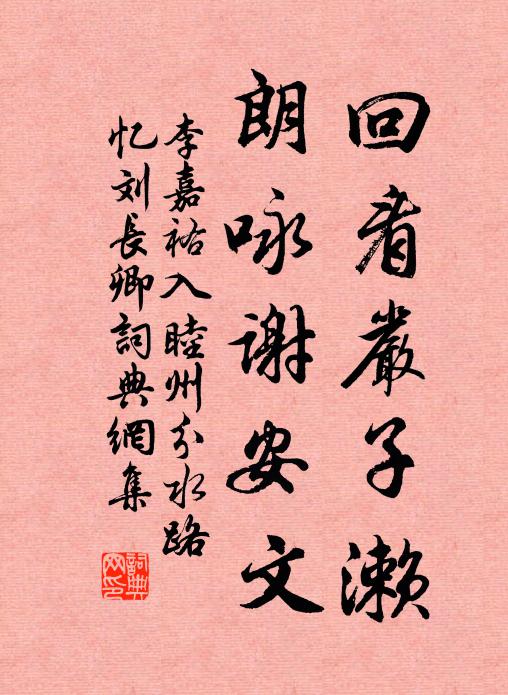 回看嚴子濑
朗咏谢安文
李嘉祐入睦州分水路
忆刘長卿詞典網集
詞典網印